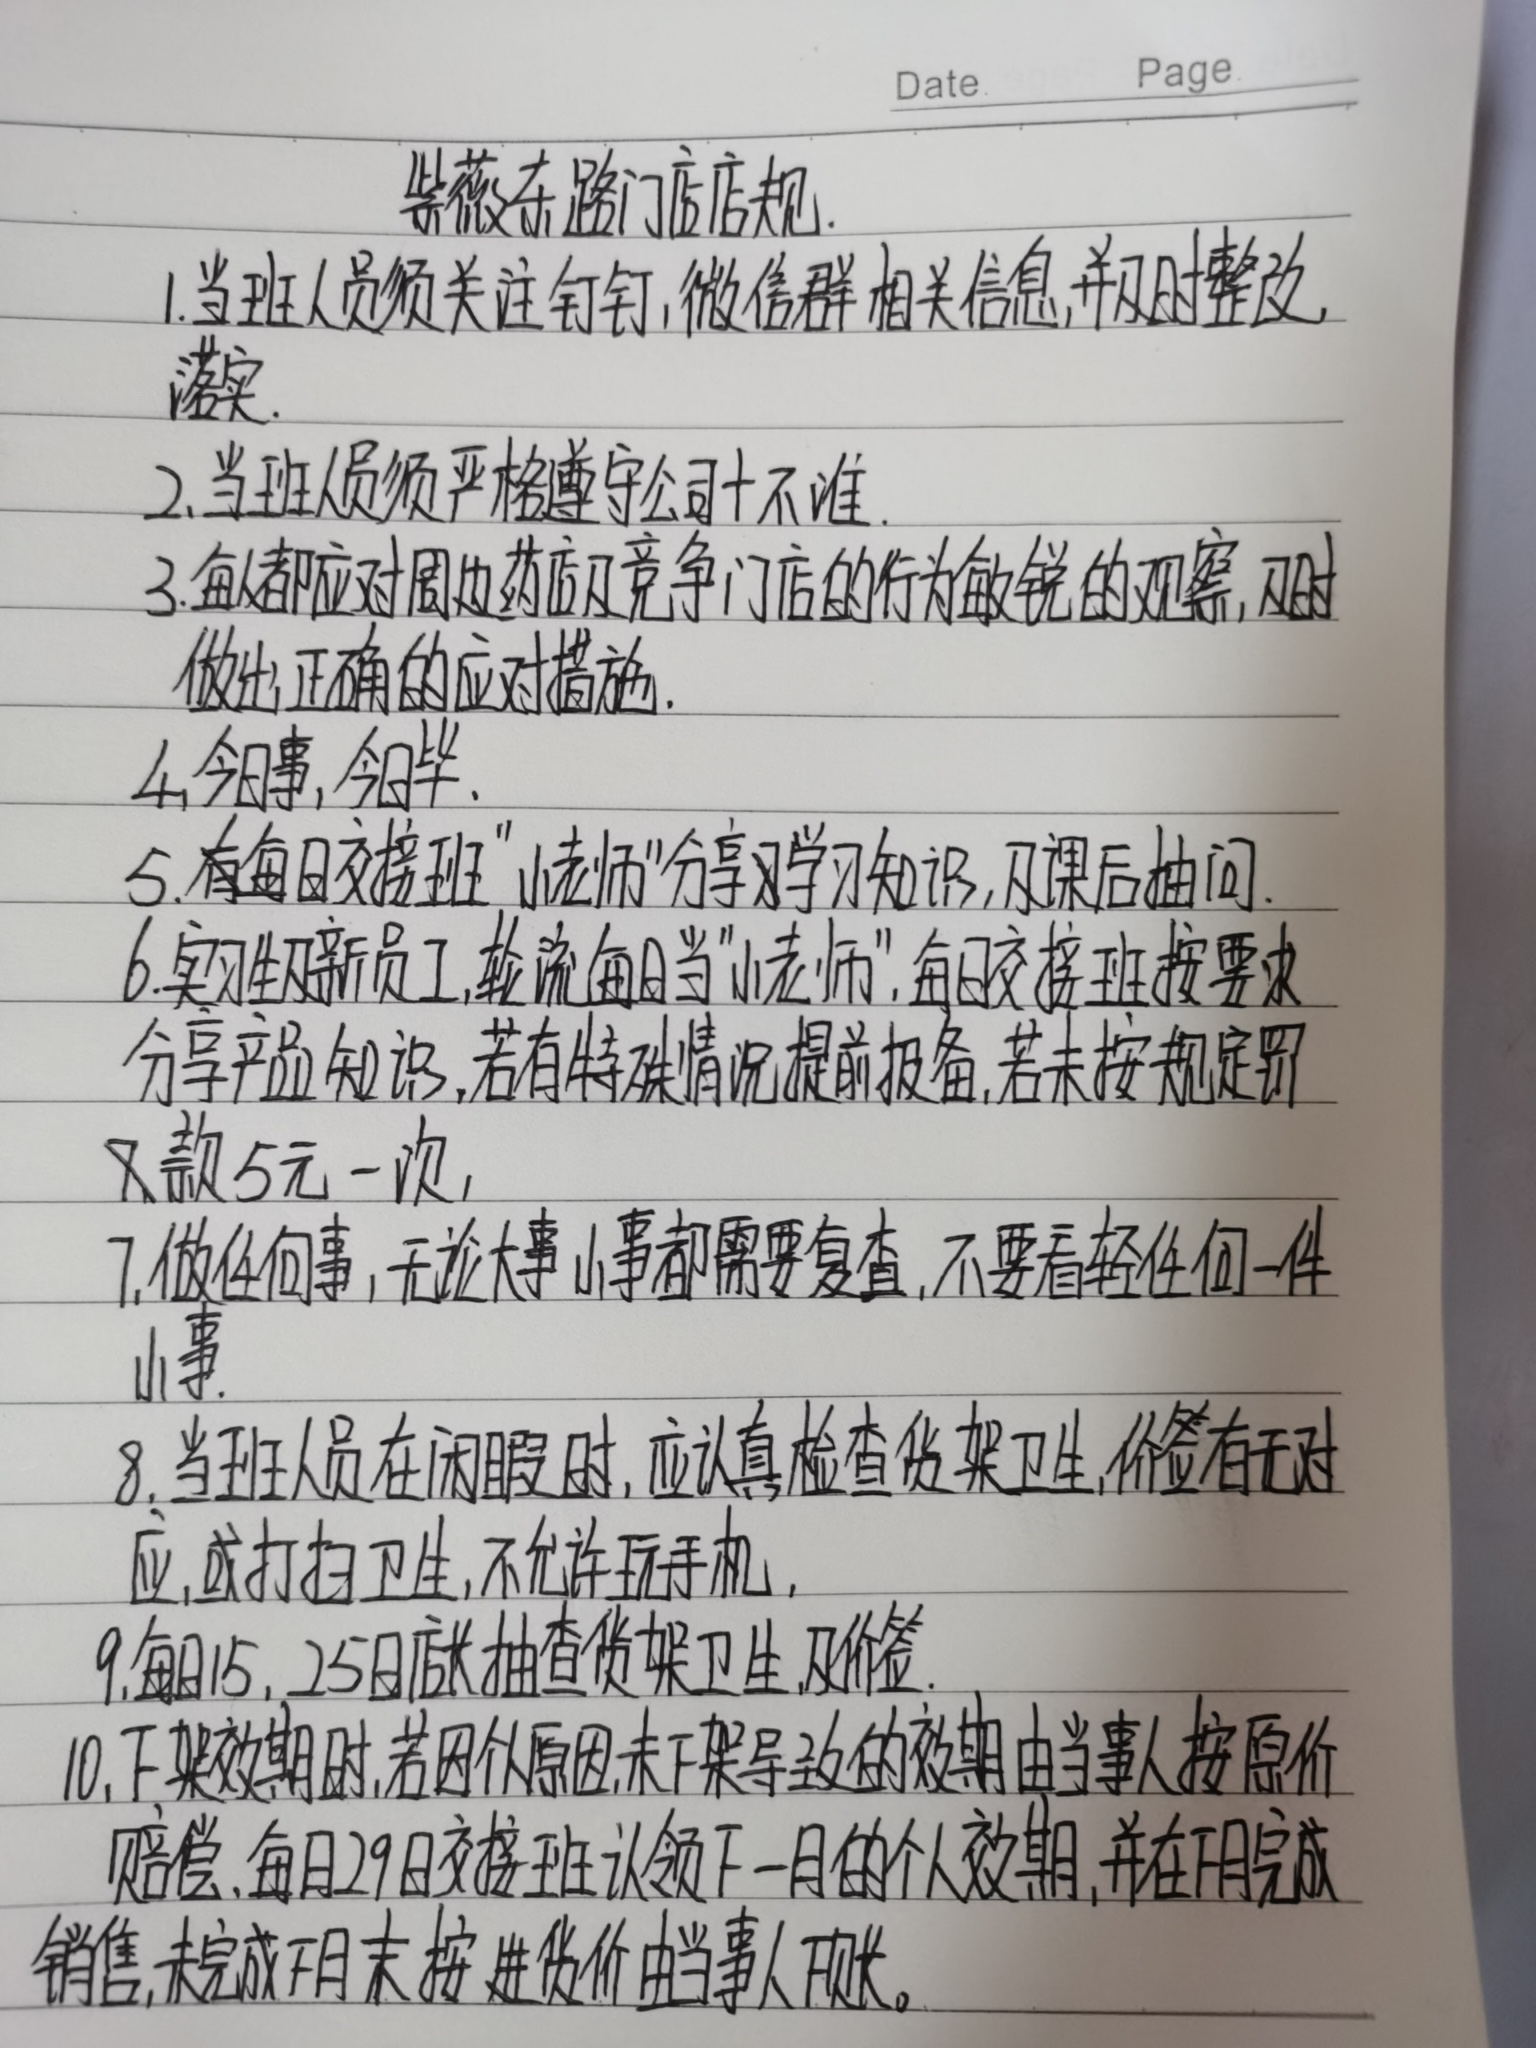 Date. Page.
紫薇东路门店店规.
1.当班人员须关注钉钉,微信群相关信息,并及时整改,
落实.
2.当班人员须严格遵守公司十不准.
3.每人都应对周边药店及竞争门店的行为敏锐的观察,及时
做出正确的应对措施.
4.今日事,今日毕.
5.有每日交接班"小老师"分享习学习知识,及课后抽问.
6.实习生及新员工,轮流每日当"小老师",每日交接班按要求
分享产品知识,若有特殊情况提前报备,若未按规定罚
款5元一次,
7.做任何事,无论大事小事都需要复查,不要看轻任何一件
小事.
8.当班人员在闲暇时,应认真检查货架卫生,价签有无对
应,或打扫卫生,不允许玩手机,
9.每日15,25日店长抽查货架卫生,及价签.
10.下架效期时,若因个人原因,未下架导致的效期由当事人按原价
赔偿、每日29日交接班认领下一月的个人效期,并在下月完成
销售,未完成下月末按进货价由当事人下账。